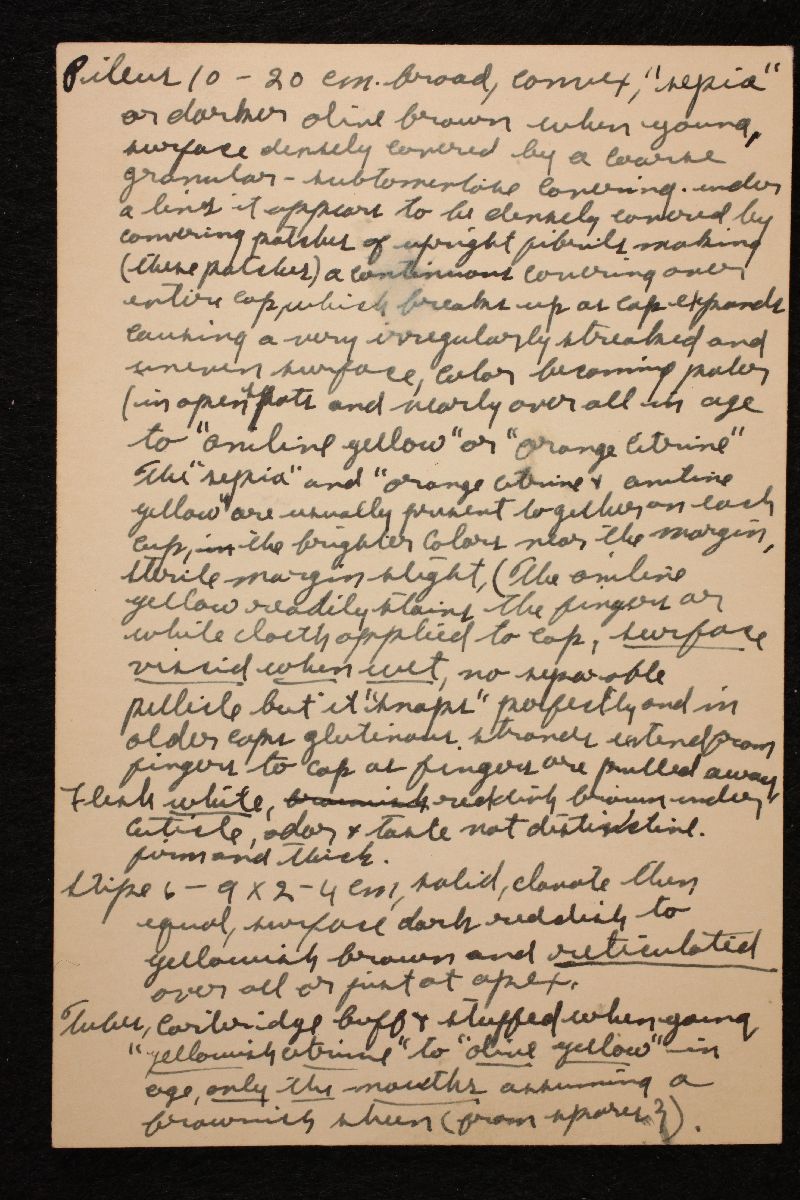 Pileus 10 - 20 cm. broad, convex, "sepia"
or darker olive brown when young,
surface densely covered by a coarse
granular - subtomentose covering. under
a lens it appears to be densely covered by
convering patches of upright fibrils making
(these patches) a continuous covering over
entire cap, which breaks up as cap expands
causing a very irregularly streaked and
uneven surface, color becoming paler
(in open spots and nearly over all in age
to "aniline yellow" or "orange citrine"
The "sepia" and "orange citrine & aniline
yellow" are usually present together on each
cap, in the brighter colors near the margin,
sterile margin slight, (The aniline
yellow readily stains the fingers or
white cloth applied to cap, surface
viscid when wet, no separable
pellicle but it "snaps" perfectly and in
older caps glutinous strands extend from
fingers to cap as fingers are pulled away
Flesh white, brownish reddish brown under
cuticle, odor & taste not distinctive.
firm and thick.
Stipe 6 - 9 x 2 - 4 cm, solid, clavate then
equal, surface dark reddish to
yellowish brown and reticulated
over all or just at apex.
Tubes, cartridge buff & stuffed when young
"yellowish citrine" to "olive yellow" in
age, only the mouths assuming a
brownish sheen (from spores?).